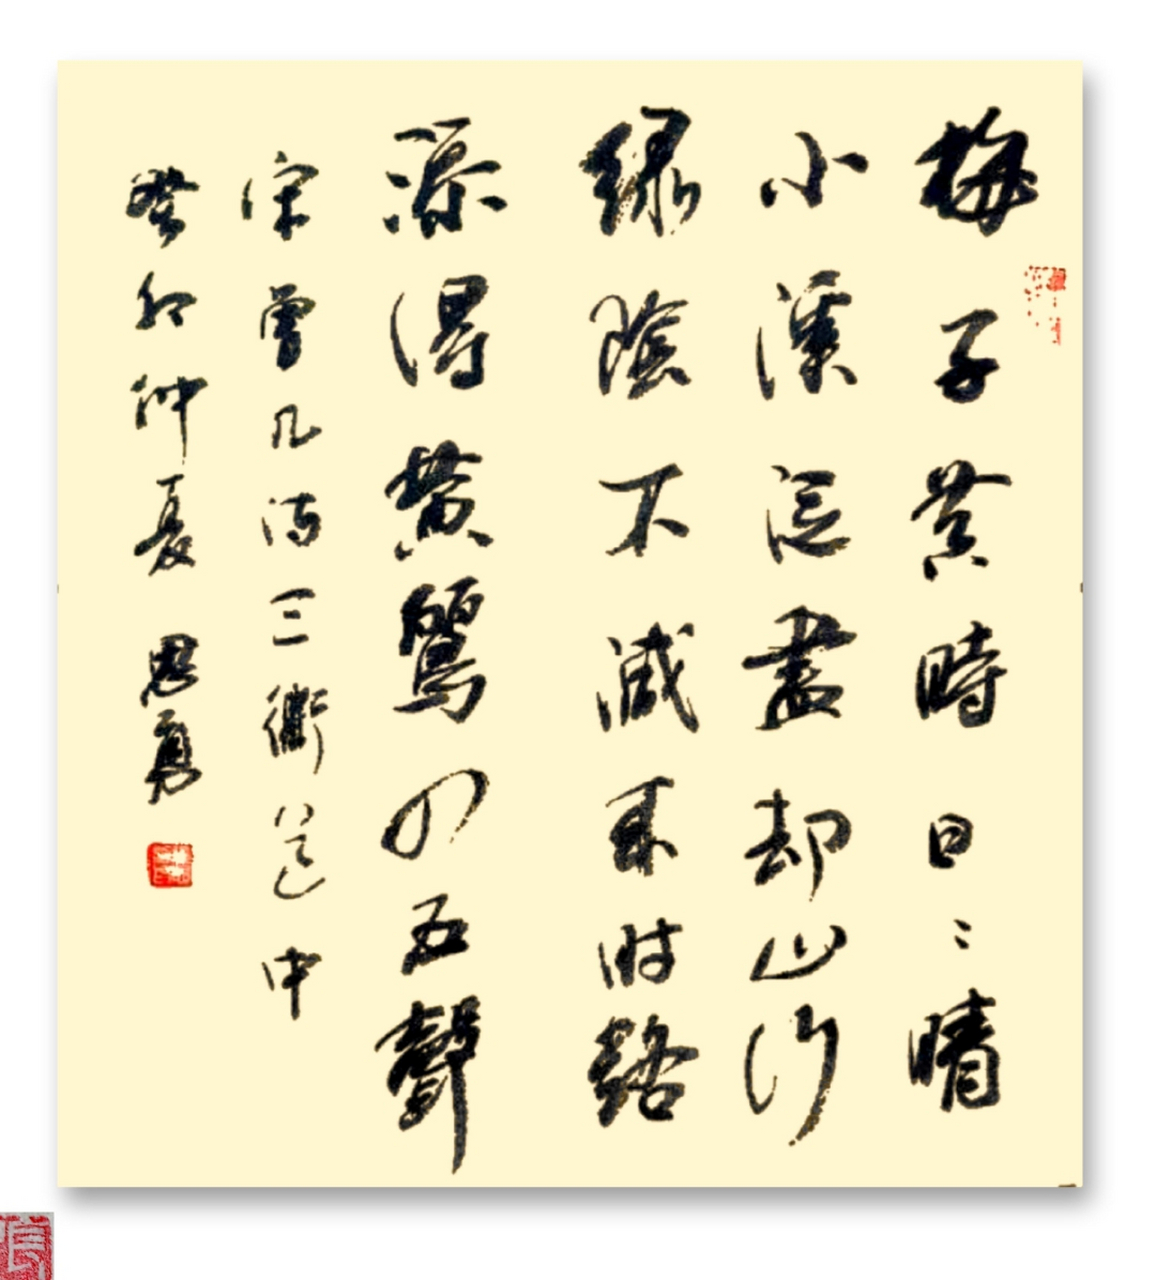 梅子黄時日〻晴
小溪泛盡却山行
緑陰不減来时路
添得黄鸝四五聲
宋曾几诗三衢道中
癸卯仲夏 思勇